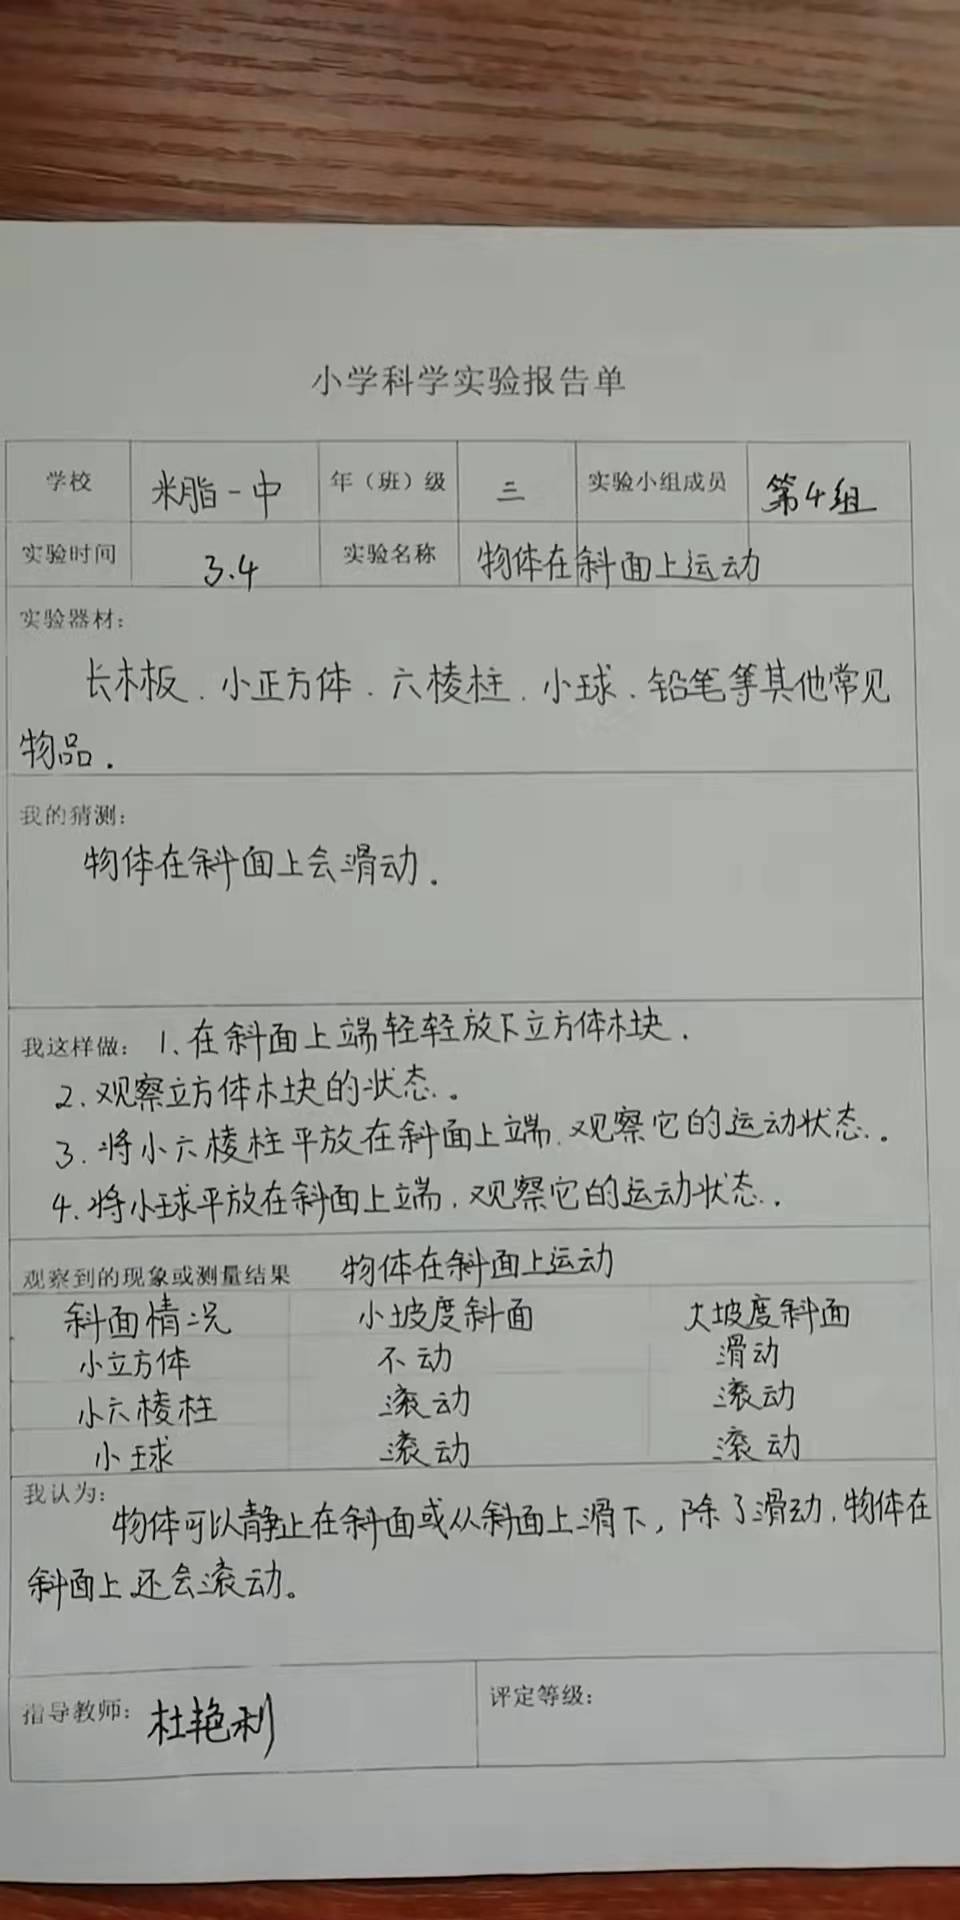 小学科学实验报告单
学校 米脂一中 年（班）级 三 实验小组成员 第4组
实验时间 3.4 实验名称 物体在斜面上运动
实验器材：
长木板．小正方体．六棱柱．小球．铅笔等其他常见
物品．
我的猜测：
物体在斜面上会滑动．
我这样做： 1、在斜面上端轻轻放下立方体木块．
2、观察立方体木块的状态．
3、将小六棱柱平放在斜面上端，观察它的运动状态．
4、将小球平放在斜面上端，观察它的运动状态．
观察到的现象或测量结果 物体在斜面上运动
斜面情况 小坡度斜面 大坡度斜面
小立方体 不动 滑动
小六棱柱 滚动 滚动
小球 滚动 滚动
我认为：
物体可以静止在斜面或从斜面上滑下，除了滑动，物体在
斜面上还会滚动。
指导教师：杜艳利 评定等级：